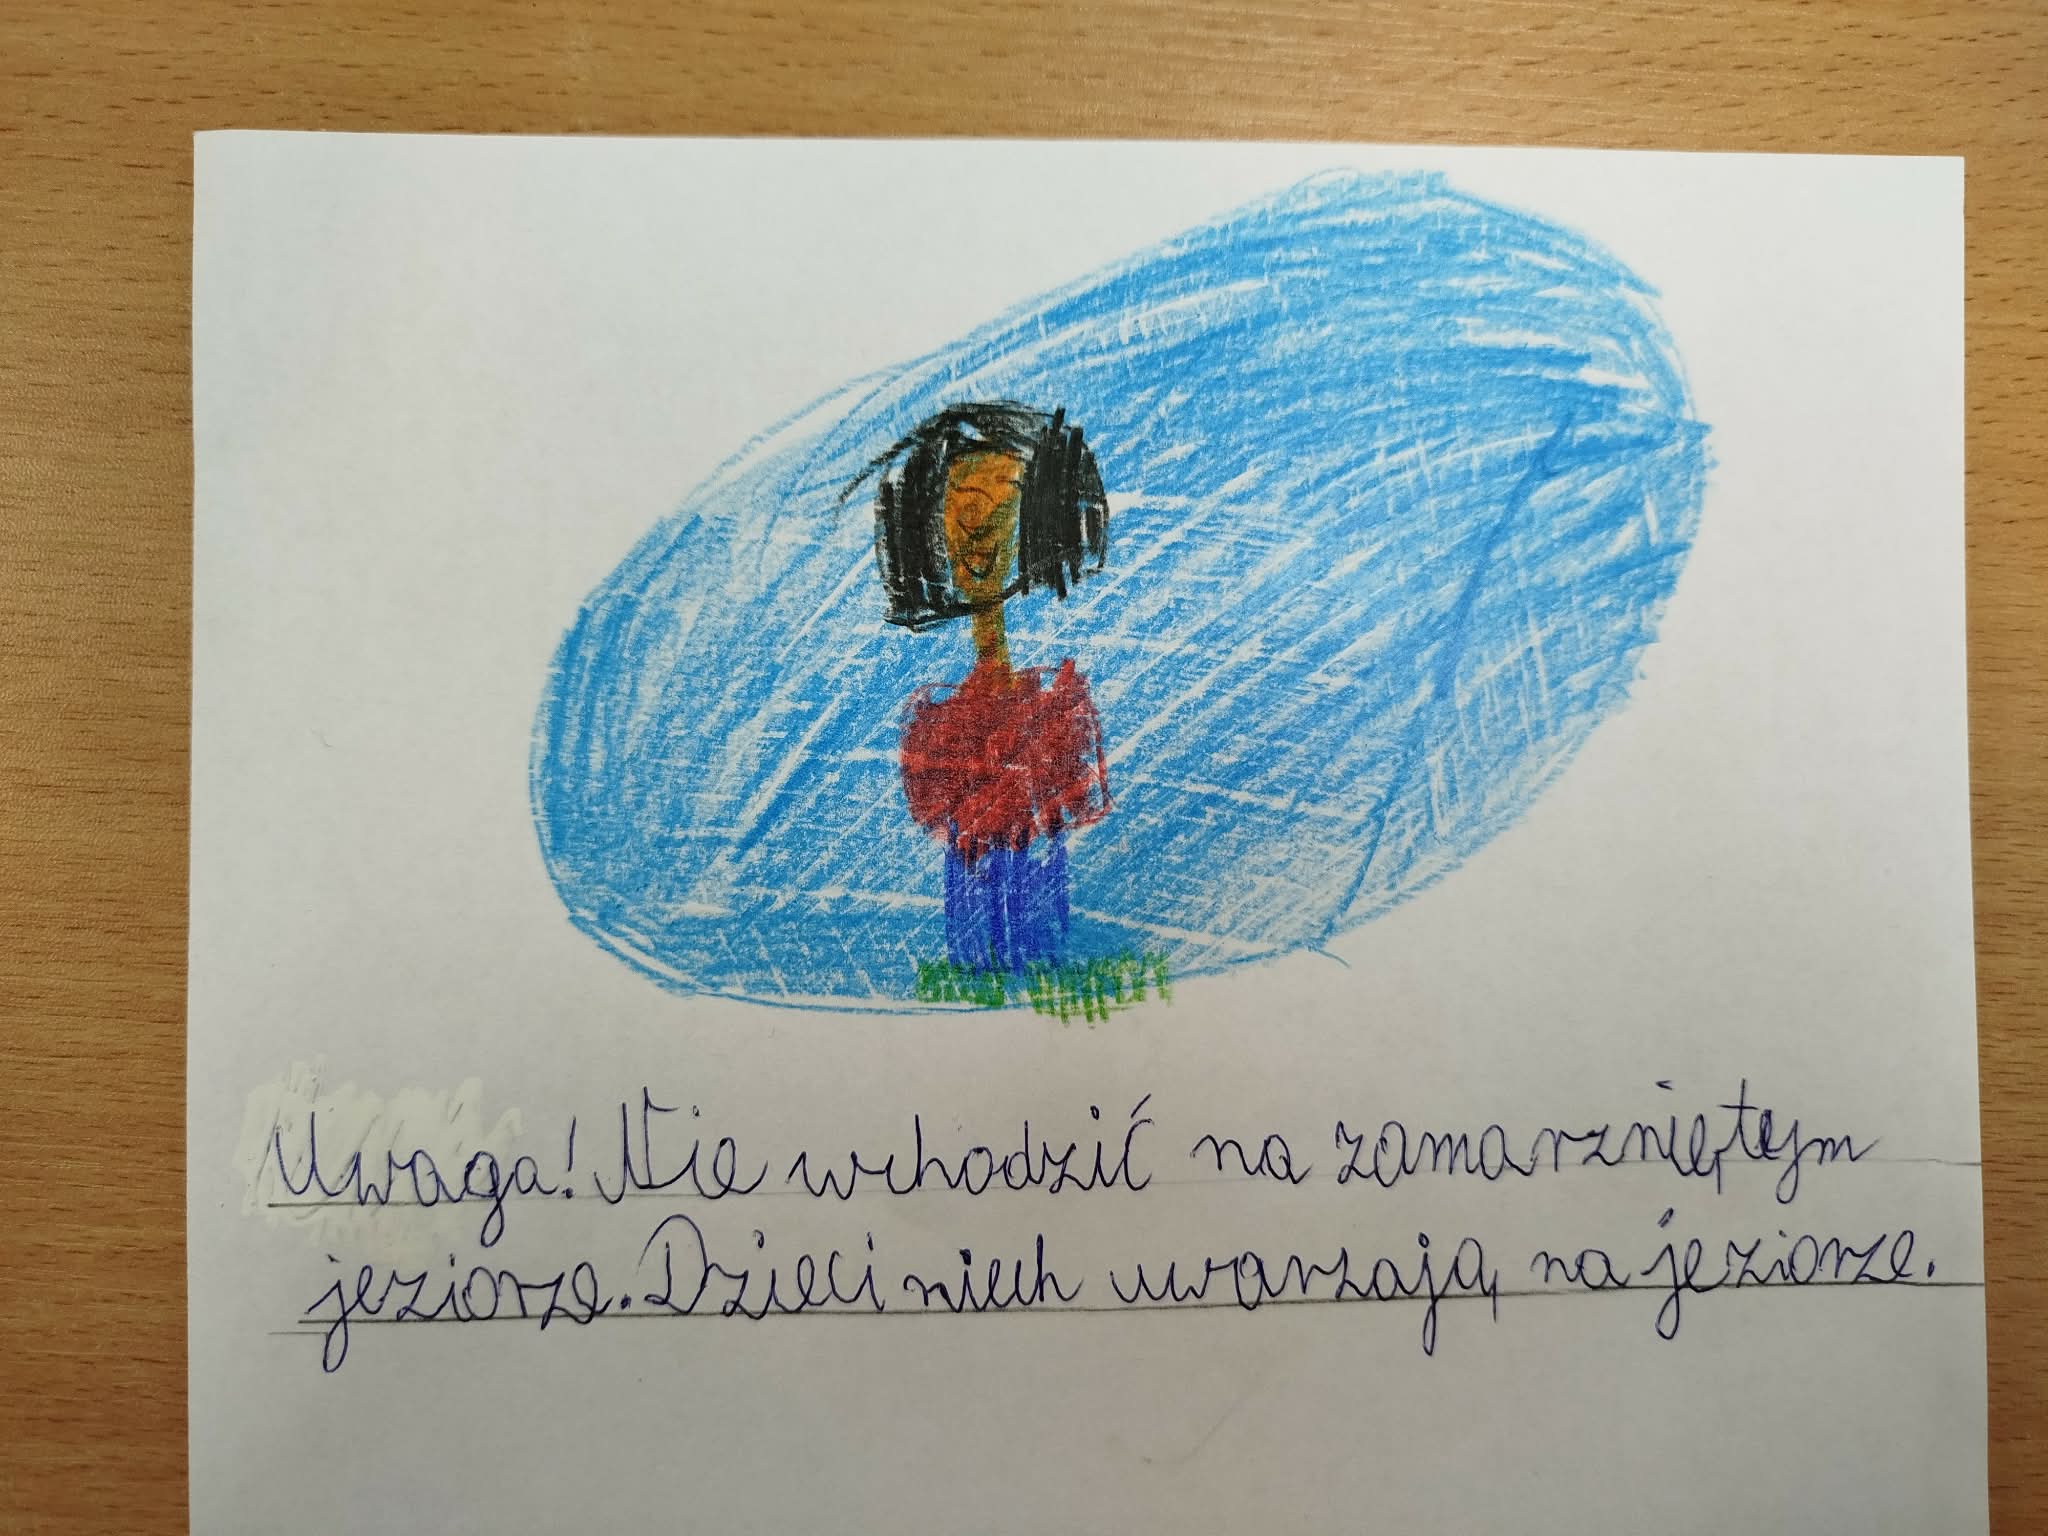 Uwaga! Nie wchodzić na zamarzniętym
jeziorze. Dzieci niech uwarzają na jeziorze.